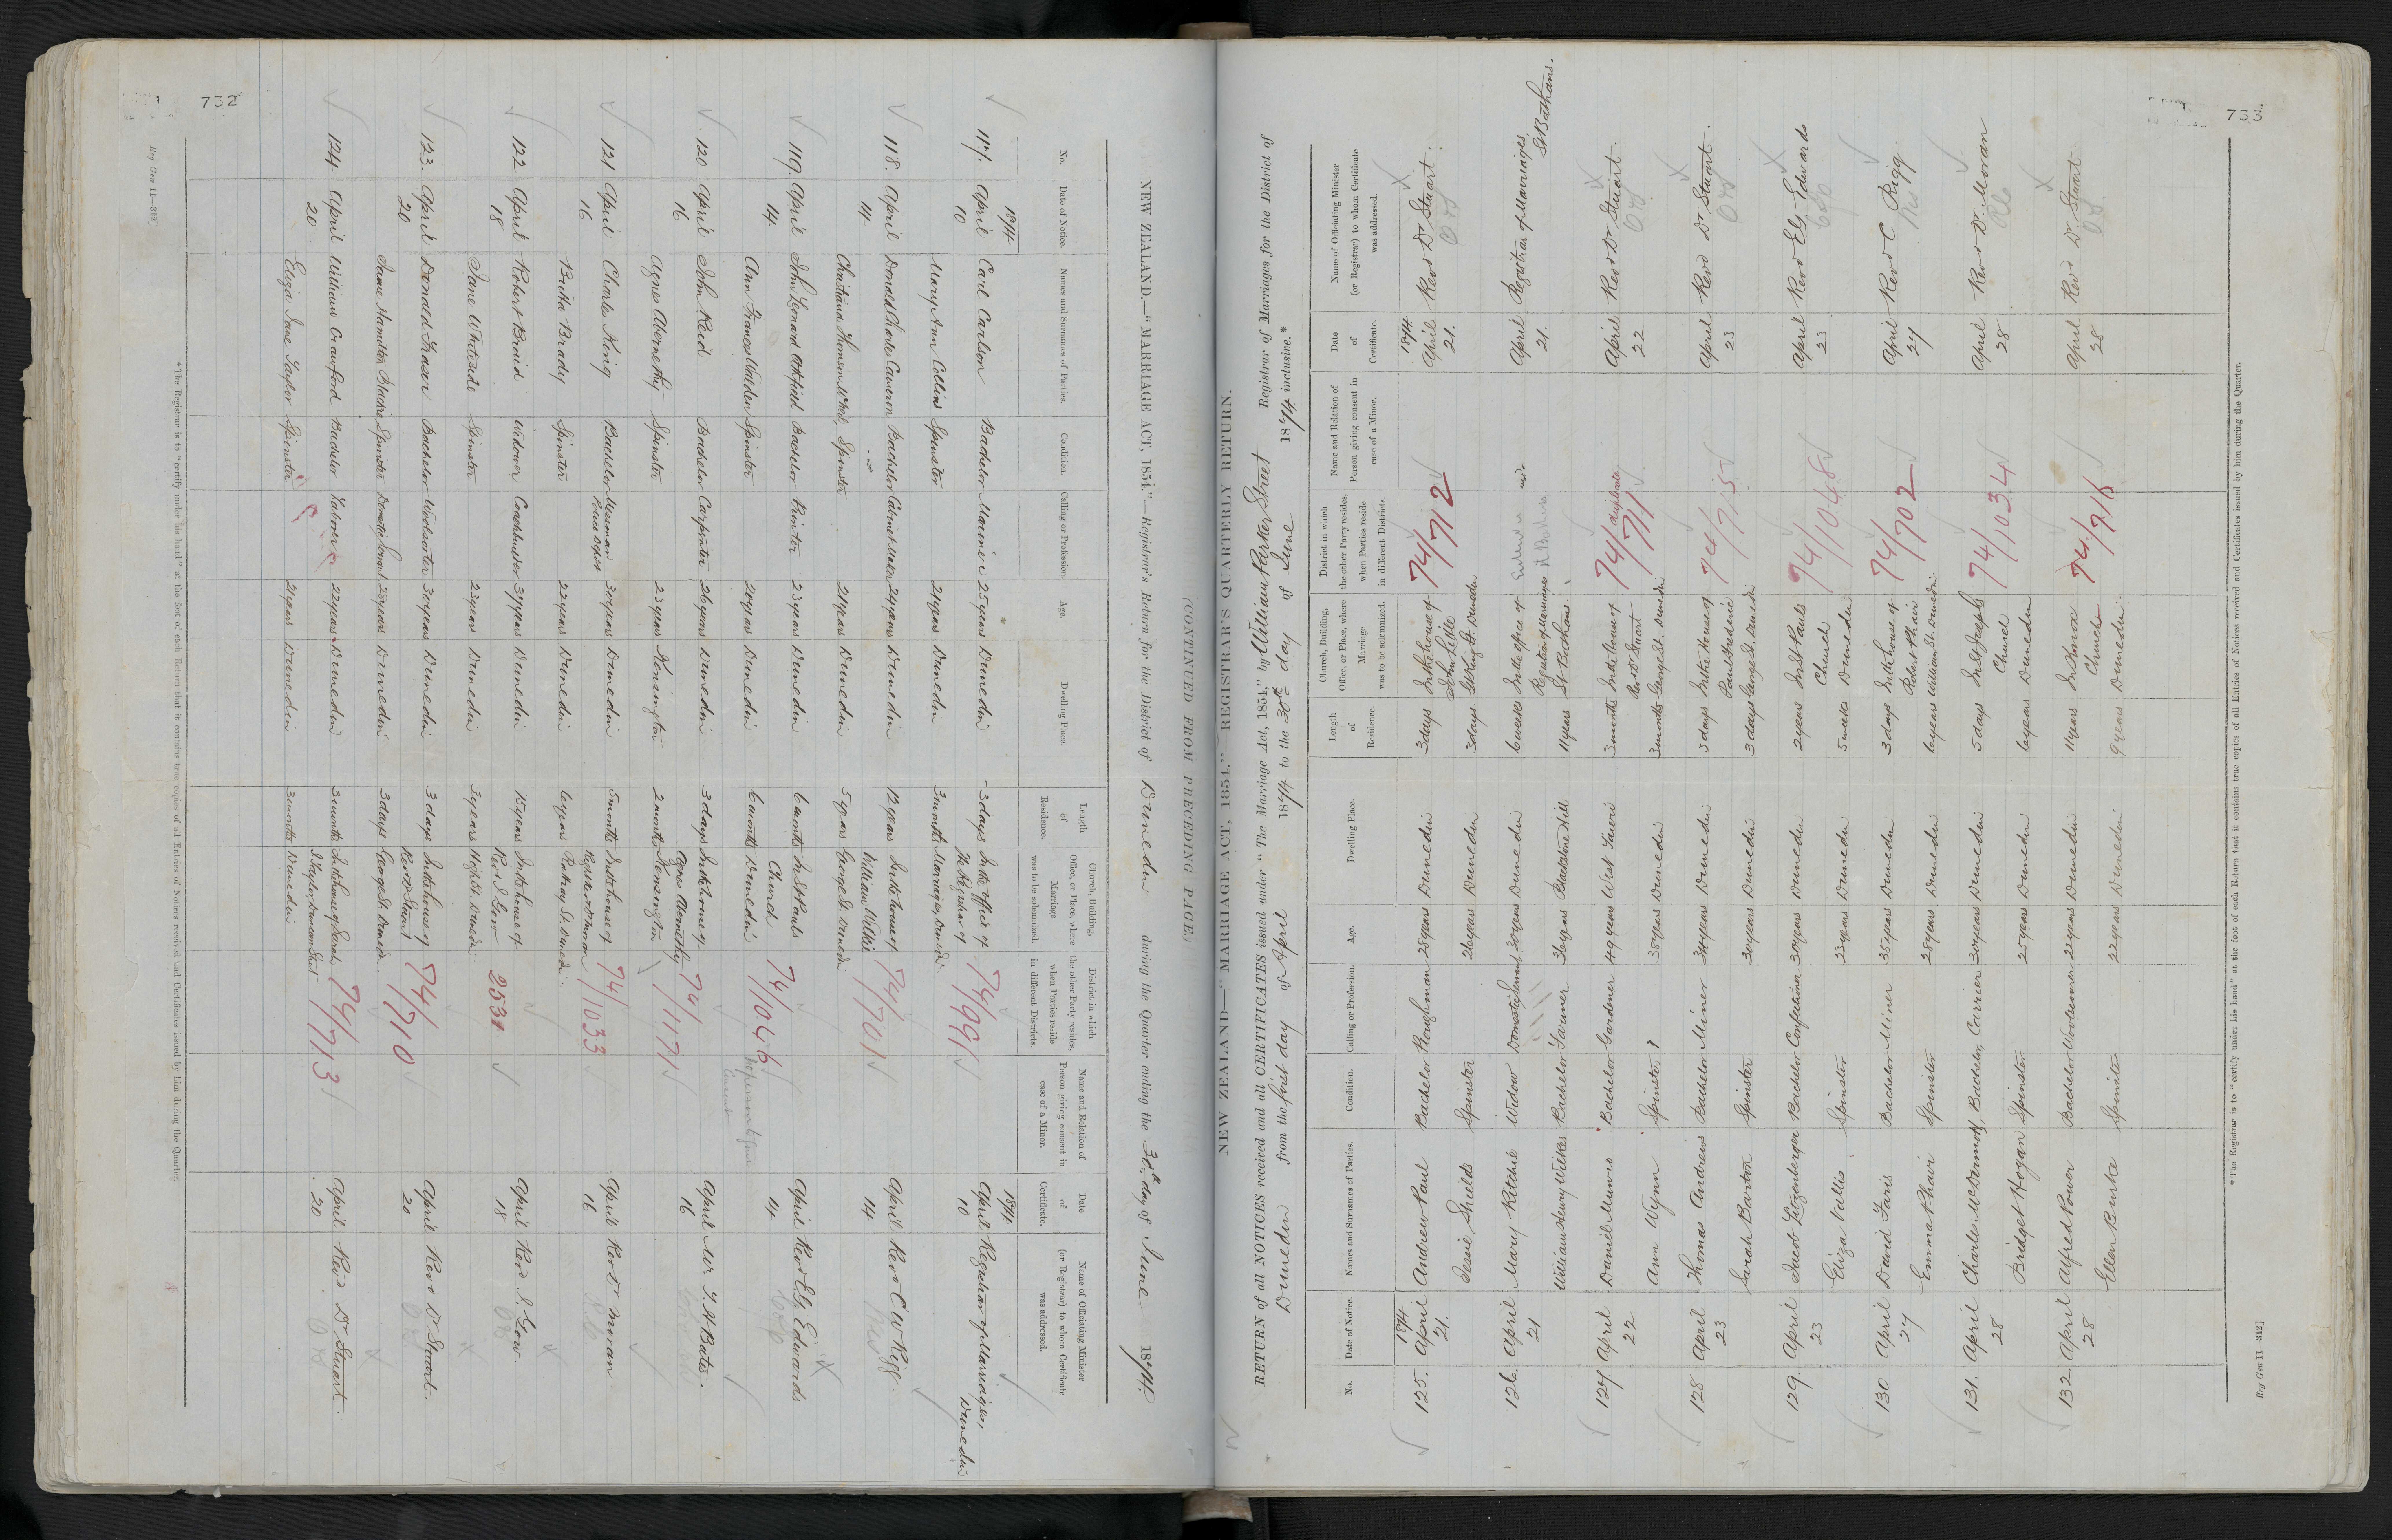 752
NEW ZEALAND.—"MARRIAGE ACT, 1854."—Registrar's Return for the District of Dunedin during the Quarter ending the 30th day of June 1874.
No. Date of Notice. Names and Surnames of Parties. Condition. Calling or Profession. Age. Dwelling Place. Length of Residence. Church, Building, Office, or Place, where Marriage was to be solemnized. District in which the other Party resides, when Parties reside in different Districts. Name and Relation of Person giving consent in case of a Minor. Date of Certificate. Name of Officiating Minister (or Registrar) to whom Certificate was addressed.
1874 1874
117. April 10 Carl Carlson Bachelor Mariner 25 years Dunedin 3 days In the Office of the Registrar of 74/991 April 10 Registrar of Marriages, Dunedin
Mary Ann Collins Spinster 21 years Dunedin 3 months Marriages, Dunedin
118. April 14 Donald Charles Cameron Bachelor Cabinet Maker 24 years Dunedin 12 years In the house of William Wilkie 74/701 April 14 Revd C W Rigg.
Christiana Thomson Spinster 21 years Dunedin 5 years George St. Dunedin
119. April 14 John Lenard Oldfield Bachelor Printer 23 years Dunedin 6 months In St Pauls Church 74/1046 April 14 Revd Ely Edwards
Ann Frances Walden Spinster 20 years Dunedin 6 months Dunedin
120 April 16 John Reid Bachelor Carpenter 26 years Dunedin 3 days In the house of Agnes Abernethy 74/1171 April 16 Mr J. H Bates.
Agnes Abernethy Spinster 23 years Kensington 2 months Kensington
121 April 16 Charles King Bachelor Messman Police Depot 30 years Dunedin 5 months In the house of 74/1033 April 16 Revd Dr Moran
Bridha Brady Spinster 22 years Dunedin 6 years Rattray St. Dunedin.
122 April 18 Robert Braid Widower Coachbuilder 37 years Dunedin 15 years In the house of Revd J. Gow 2531 April 18 Revd J. Gow
Jane Whiteside Spinster 23 years Dunedin 3 years High St. Dunedin
123. April 20 Donald Fraser Bachelor Woolsorter 30 years Dunedin 3 days In the house of Revd Dr Stuart 74/710 April 20 Revd Dr Stuart.
Jane Hamilton Blackie Spinster Domestic Servant 25 years Dunedin 3 days George St. Dunedin.
124 April 20 William Crawford Bachelor Laborer 22 years Dunedin 3 months In the house of Sarah J. Taylor Duncan Street 74/713 April 20 Revd. Dr Stuart.
Eliza Jane Taylor Spinster 21 years Dunedin 3 months Dunedin
*The Registrar is to "certify under his hand" at the foot of each Return that it contains true copies of all Entries of Notices received and Certificates issued by him during the Quarter.
Reg Gen 11—312]
733
(CONTINUED FROM PRECEDING PAGE.)
NEW ZEALAND—"MARRIAGE ACT, 1854."—REGISTRAR'S QUARTERLY RETURN.
RETURN of all NOTICES received and all CERTIFICATES issued under "The Marriage Act, 1854," by William Parker Street Registrar of Marriages for the District of
Dunedin from the first day of April 1874 to the 30th day of June 1874 inclusive.*
No. Date of Notice. Names and Surnames of Parties. Condition. Calling or Profession. Age. Dwelling Place. Length of Residence. Church, Building, Office, or Place, where Marriage was to be solemnized. District in which the other Party resides, when Parties reside in different Districts. Name and Relation of Person giving consent in case of a Minor. Date of Certificate. Name of Officiating Minister (or Registrar) to whom Certificate was addressed.
1874 1874
125. April 21. Andrew Paul Bachelor Ploughman 28 years Dunedin 3 days In the house of John Little 74/712 April 21. Revd Dr Stuart.
Jessie Shields Spinster 26 years Dunedin 3 days Gt King St. Dunedin
126. April 21 Mary Ritchie Widow Domestic Servant 30 years Dunedin 6 weeks In the office of Registrar of Marriages April 21. Registrar of Marriages, St Bathans.
William Henry Wilkes Bachelor Farmer 36 years Blackstone Hill 11 years St Bathans.
127 April 22 Daniel Munro Bachelor Gardener 49 years West Taieri 3 months In the house of Revd Dr Stuart 74/711 duplicate April 22 Revd Dr Stuart.
Ann Wynn Spinster ? 38 years Dunedin 3 months George St. Dunedin
128 April 23 Thomas Andrews Bachelor Miner 34 years Dunedin 3 days In the House of Paul Frederic 74/715 April 23 Revd Dr Stuart.
Sarah Barton Spinster 30 years Dunedin 3 days George St. Dunedin
129. April 23 Jacob Litzenberger Bachelor Confectioner 30 years Dunedin 2 years In St Pauls Church 74/1048 April 23 Revd Ely Edwards
Eliza Vallis Spinster 23 years Dunedin 5 weeks Dunedin
130 April 27 David Faris Bachelor Miner 35 years Dunedin 3 days In the house of Robert Phair 74/702 April 27 Revd C Rigg.
Emma Phair Spinster 28 years Dunedin 6 years William St. Dunedin.
131. April 28 Charles McDermott Bachelor Carrier 30 years Dunedin 5 days In St Josephs Church 74/1034 April 28 Revd Dr. Moran
Bridget Hogan Spinster 25 years Dunedin 6 years Dunedin
132. April 28 Alfred Power Bachelor Warehouseman 22 years Dunedin 11 years In Knox Church 74/716 April 28 Revd Dr. Stuart.
Ellen Burke Spinster 22 years Dunedin 9 years Dunedin.
*The Registrar is to "certify under his hand" at the foot of each Return that it contains true copies of all Entries of Notices received and Certificates issued by him during the Quarter.
Reg Gen 11—312]